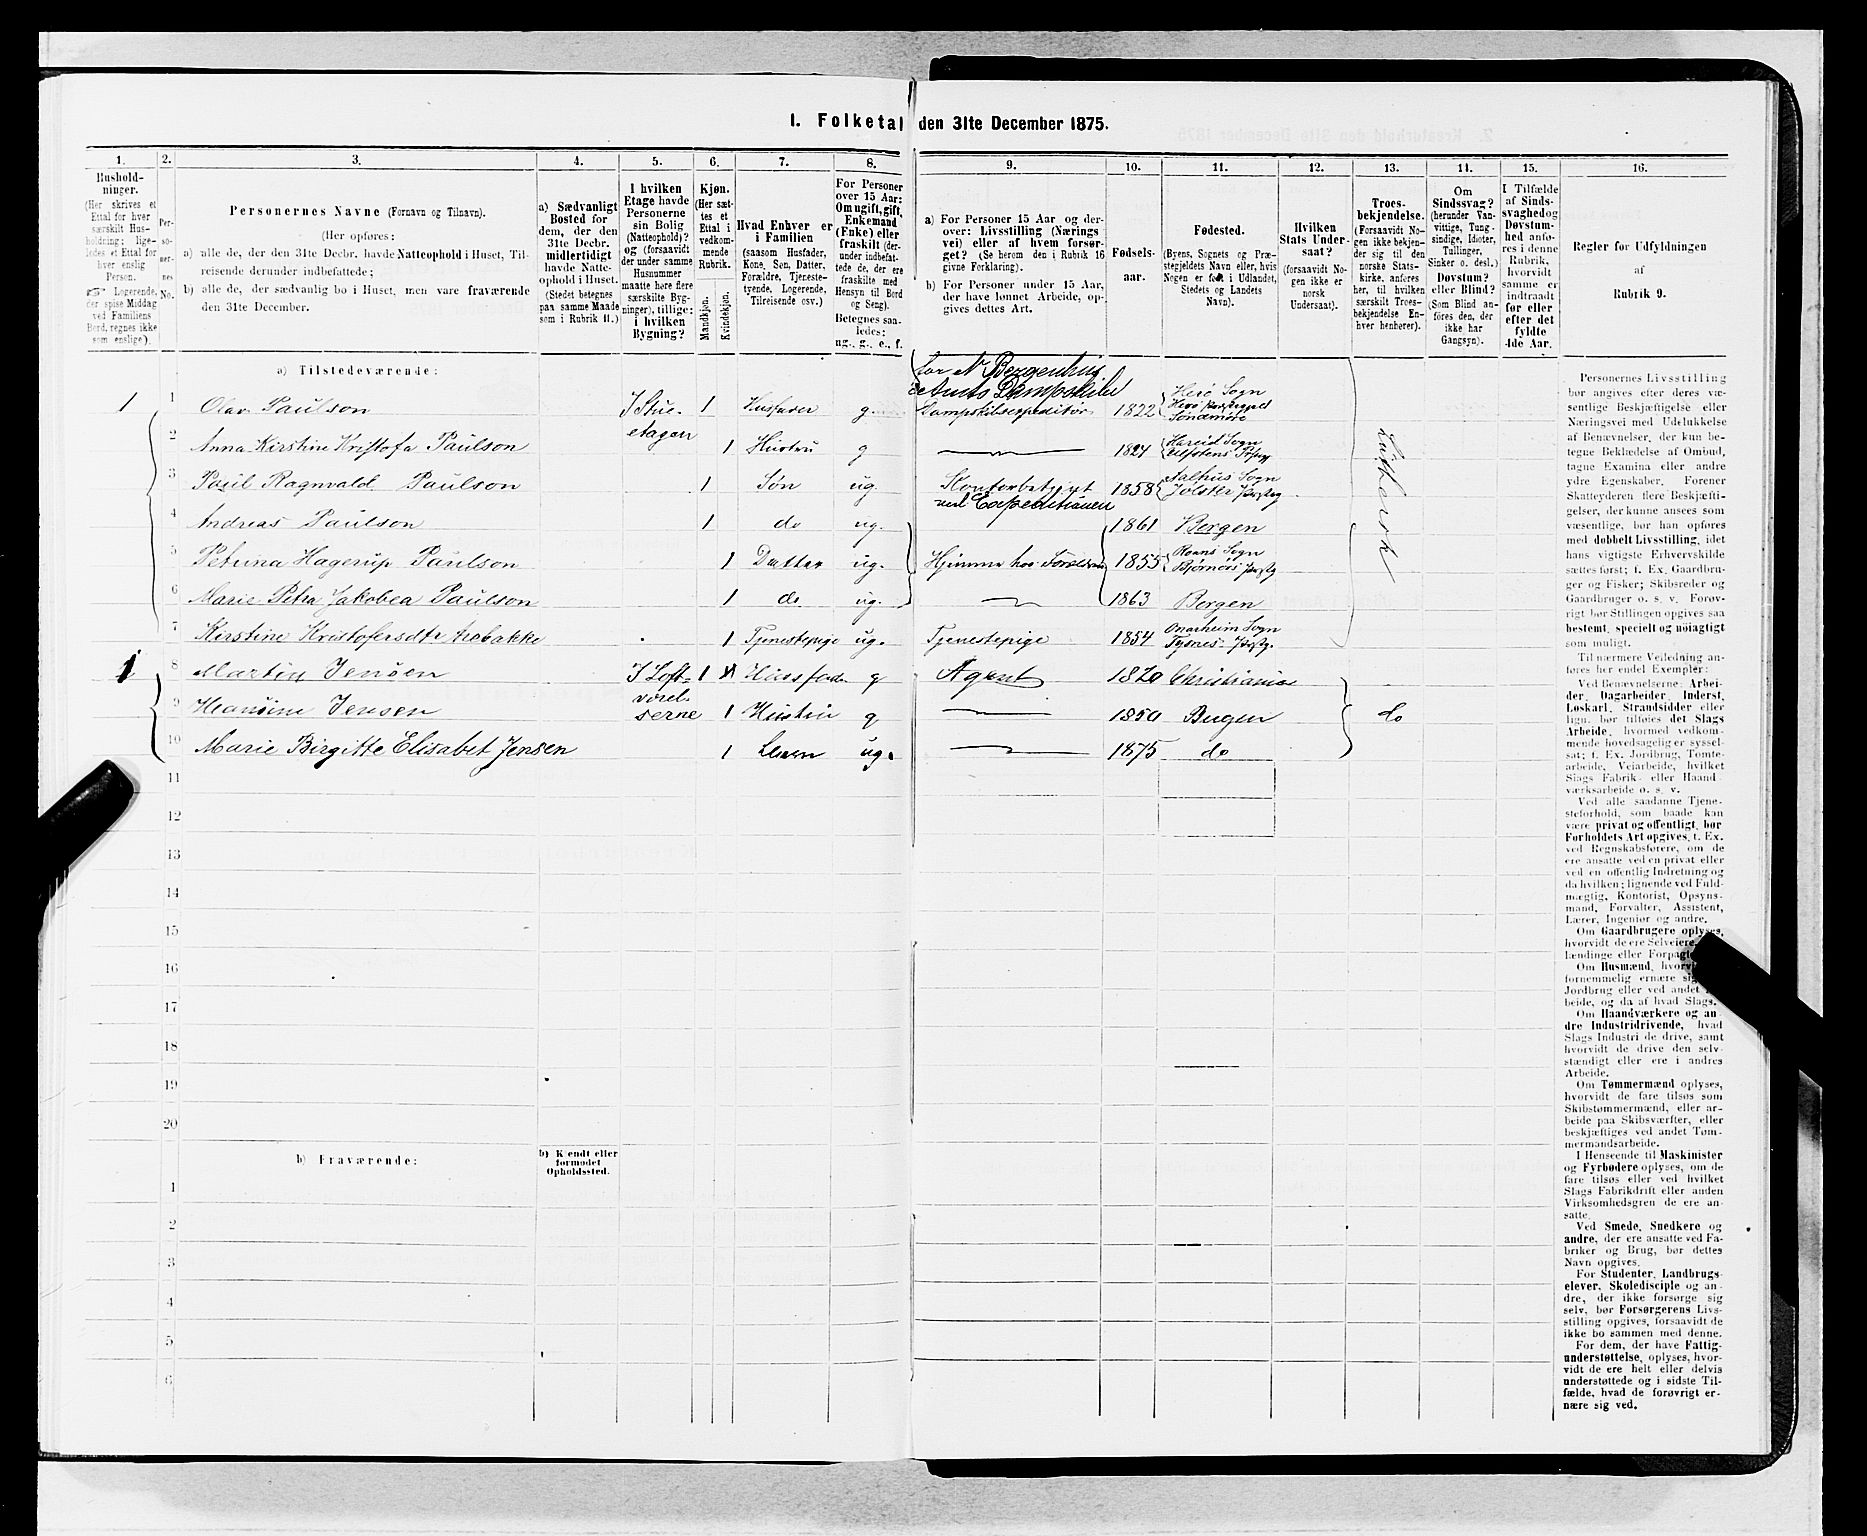 1. Folketal den 31te December 1875.
1. 2. 3. 4. 5. 6. 7. 8. 9. 10. 11. 12. 13. 14. 15. 16.
Hushold-
ninger.
(Her skrives et
Ettal for hver
særskilt Hus-
holdning; lige-
ledes et Ettal for
hver enslig
Person.
Logerende,
der spise Middag
ved Familiens
Bord, regnes ikke
som enslige).
Per-
so-
ner-
nes
No.
Personernes Navne (Fornavn og Tilnavn).
(Her opføres:
a) alle de, der den 31te Decbr. havde Natteophold i Huset, Til-
reisende derunder indbefattede;
b) alle de, der sædvanlig bo i Huset, men vare fraværende
den 31te December.
a) Sædvanligt
Bosted for
dem, der den
31te Decbr.
midlertidigt
havde Natte-
ophold i Huset.
(Stedet betegnes
paa samme Maade
som i Rubrik 11.)
I hvilken
Etage havde
Personerne
sin Bolig
(Natteophold)?
og (forsaavidt
der under samme
Husnummer
maatte høre flere
særskilte Byg-
ninger), tillige:
i hvilken
Bygning?
Kjøn.
(Her sæt-
tes et
Ettal i
vedkom-
mende
Rubrik.
Mandkjøn.
Kvindekjøn.
Hvad Enhver er
i Familien
(saasom Husfader,
Kone, Søn, Datter,
Forældre, Tjeneste-
tyende, Logerende,
Tilreisende osv.)
For Personer
over 15 Aar:
Om ugift, gift,
Enkemand
(Enke) eller
fraskilt (der-
under indbefat-
tede de, der ere
fraskilte med
Hensyn til Bord
og Seng).
Betegnes saa-
ledes:
ug., g., e., f.
a) For Personer 15 Aar og der-
over: Livsstilling (Nærings
vei) eller af hvem forsør-
get? (Se herom den i Rubrik 16
givne Forklaring).
b) For Personer under 15 Aar,
der have lønnet Arbeide, op-
gives dettes Art.
Fødsels-
aar.
Fødested.
(Byens, Sognets og Præ-
stegjeldets Navn eller, hvis
Nogen er født i Udlandet,
Stedets og Landets
Navn).
Hvilken
Stats Under-
saat?
(forsaavidt No-
gen ikke er
norsk
Undersaat).
Troes-
bekjendelse.
(Forsaavidt No-
gen ikke bekjen-
der sig til den
norske Stats-
kirke, anføres
her, til hvilken
særskilt Troes-
bekjendelse En-
hver henhører).
Om
Sindssvag?
(herunder Van-
vittige, Tung-
sindige, Idioter,
Tullinger,
Sinker o. desl.)
Døvstum?
eller Blind?
(Som Blind an-
føres den, der
ikke har
Gangsyn).
I Tilfælde
af Sinds-
svaghed og
Døvstum-
hed anfø-
res i denne
Rubrik,
hvorvidt
samme er
indtraadt
før eller
efter det
fyldte
4de Aar.
Regler for Udfyldningen
af
Rubrik 9.
a) Tilstedeværende:
for N Bergenhus
Amts Dampskibe
1 1 Olav Paulson I Stue- 1 Husfader g. Dampskibsexpeditør 1822 Herø Sogn Herø Søndmøre
2 Anna Kirstine Kristofa Paulson etagen 1 Hustru g 1824 Hareid Sogn
3 Paul Ragnvald Paulson 1 Søn ug. Kontorbetjent ved Expeditionen 1858 Aalhus Sogn Jølster Prstg
4 Andreas Paulson 1 do ug. 1861 Bergen
5 Petrina Hagerup Paulson 1 Datter ug. Hjemme hos Forældrene 1855 Roans Sogn Bjørnørs Prstg
6 Marie Petra Jakobea Paulson 1 do ug. 1863 Bergen
7 Kirstine Kristofersdtr Arebakke 1 Tjenestepige ug. Tjenestepige 1854 Onarheim Sogn Tysnes Prstg.
Luthersk
1 8 Martin Jensen I Loft- 1 Huusfader g Agent 1820 Christiania
9 Hansine Jensen værel- serne 1 Hustru g 1850 Bergen do
10 Marie Birgitte Elisabet Jensen 1 ug. 1875 do
11
12
13
14
15
16
17
18
19
20
b) Fraværende:
b) Kjendt eller
formodet
Opholdssted.
1
2
3
4
5
6
Personernes Livsstilling
bør angives efter deres væ-
sentlige Beskjæftigelse eller
Næringsvei med Udelukkelse
af Benævnelser, der kun be-
tegne Beklædelse af Ombud,
tagne Examina eller andre
ydre Egenskaber. Forener
Skatteyderen flere Beskjæfti-
gelser, der kunne ansees som
væsentlige, bør han opføres
med dobbelt Livsstilling, idet
hans vigtigste Erhvervskilde
sættes først; f. Ex. Gaardbru-
ger og Fisker; Skibsreder og
Gaardbruger o. s. v. Forøv-
rigt bør Stillingen opgives saa
bestemt, specielt og nøiagtigt
som muligt.
Til nærmere Veiledning an-
føres her endel Exempler:
Ved Benævnelserne: Arbei-
der, Dagarbeider, Inderst,
Løskarl, Strandsidder eller
lign. bør tilføies det Slags
Arbeide, hvormed vedkom-
mende hovedsagelig er syssel-
sat; f. Ex. Jordbrug, Tomte-
arbeide, Veiarbeide, hvilket
Slags Fabrik- eller Haand-
værksarbeide o. s. v.
Ved alle saadanne Tjene-
steforhold, som baade kan
være privat og offentligt, bør
Forholdets Art opgives, t. Ex.
ved Regnskabsførere, om de
ere ansatte ved en privat eller
ved en offentlig Indretning og
da hvilken; lignende ved Fuld-
mægtig, Kontorist, Opsyns-
mand, Forvalter, Assistent,
Lærer, Ingeniør og andre.
Om Gaardbrugere oplyses,
hvorvidt de ere Selveiere,
lændinge eller
Om Husmænd,
fornemmelig ernære
Jordbrug eller ved andet
beide, og da af hvad Slags.
Om Haandværkere og an-
dre Industridrivende, hvad
Slags Industri de drive, samt
hvorvidt de drive den selv-
stændigt eller ere i andres
Arbeide.
Om Tømmermænd oplyses,
hvorvidt de fare tilsøs som
Skibstømmermænd, eller ar-
beide paa Skibsværfter, eller
beskjæftiges ved andet Tøm-
mermandsarbeide.
I Henseende til Maskinister
og Fyrbødere oplyses, om de
fare tilsøs eller ved hvilket
Slags Fabrikdrift eller anden
Virksomhedsgren de ere an-
satte.
Ved Smede, Snedkere og
andre, der ere ansatte ved Fa-
briker og Brug, bør dettes
Navn opgives.
For Studenter, Landbrugs-
elever, Skoledisciple og an-
dre, der ikke forsørge sig
selv, bør Forsørgerens Livs-
stilling opgives, forsaavidt de
ikke bo sammen med denne.
For dem, der have Fattig-
understøttelse, oplyses, hvor-
vidt de ere helt eller delvis
understøttede og i sidste Til-
fælde, hvad de forøvrigt er-
nære sig ved.